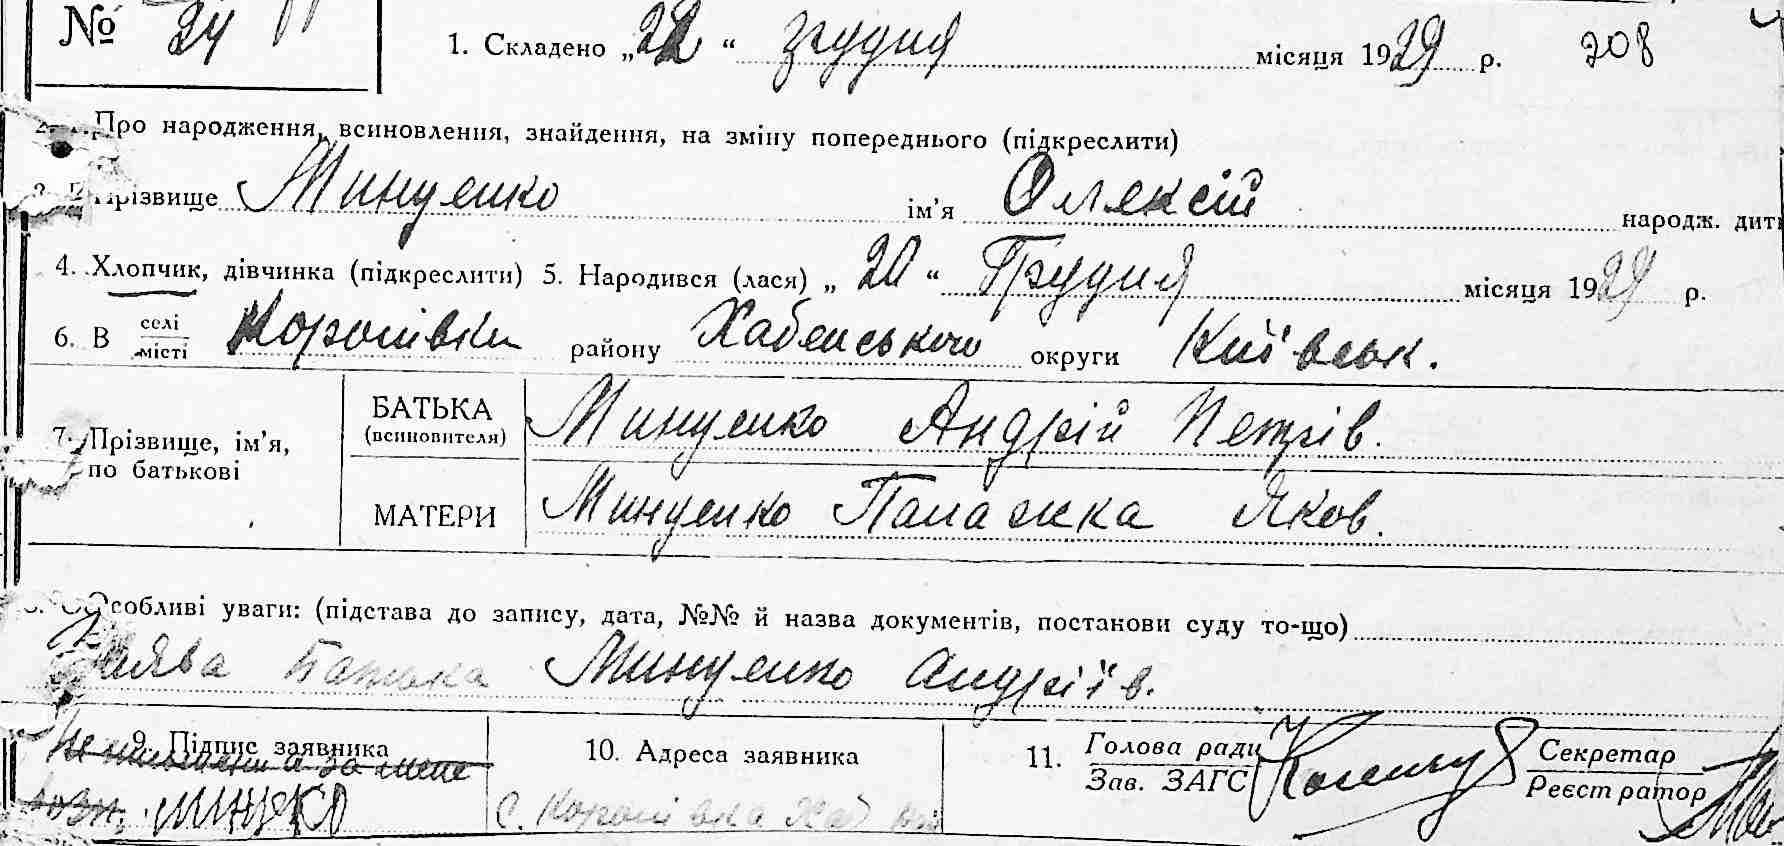 № 24
1. Складено „22“ грудня місяця 1929 р. 208
Про народження, всиновлення, знайдення, на зміну попереднього (підкреслити)
Прізвище Минуенко ім'я Олексій народж. дит
4. Хлопчик, дівчинка (підкреслити) 5. Народився (лася) „20“ Грудня місяця 1929 р.
6. В селі місті Королівки району Хабенського округи Київськ.
7. Прізвище, ім'я, по батькові
БАТЬКА (всиновителя) Минуенко Андрій Петрів.
МАТЕРИ Минуенко Палажка Яков.
Особливі уваги: (підстава до запису, дата, №№ й назва документів, постанови суду то-що)
Заява Батька Минуенко Андріїв.
9. Підпис заявника 10. Адреса заявника 11. Голова ради Зав. ЗАГС Секретар Реєстратор
с. Королівка Хаб